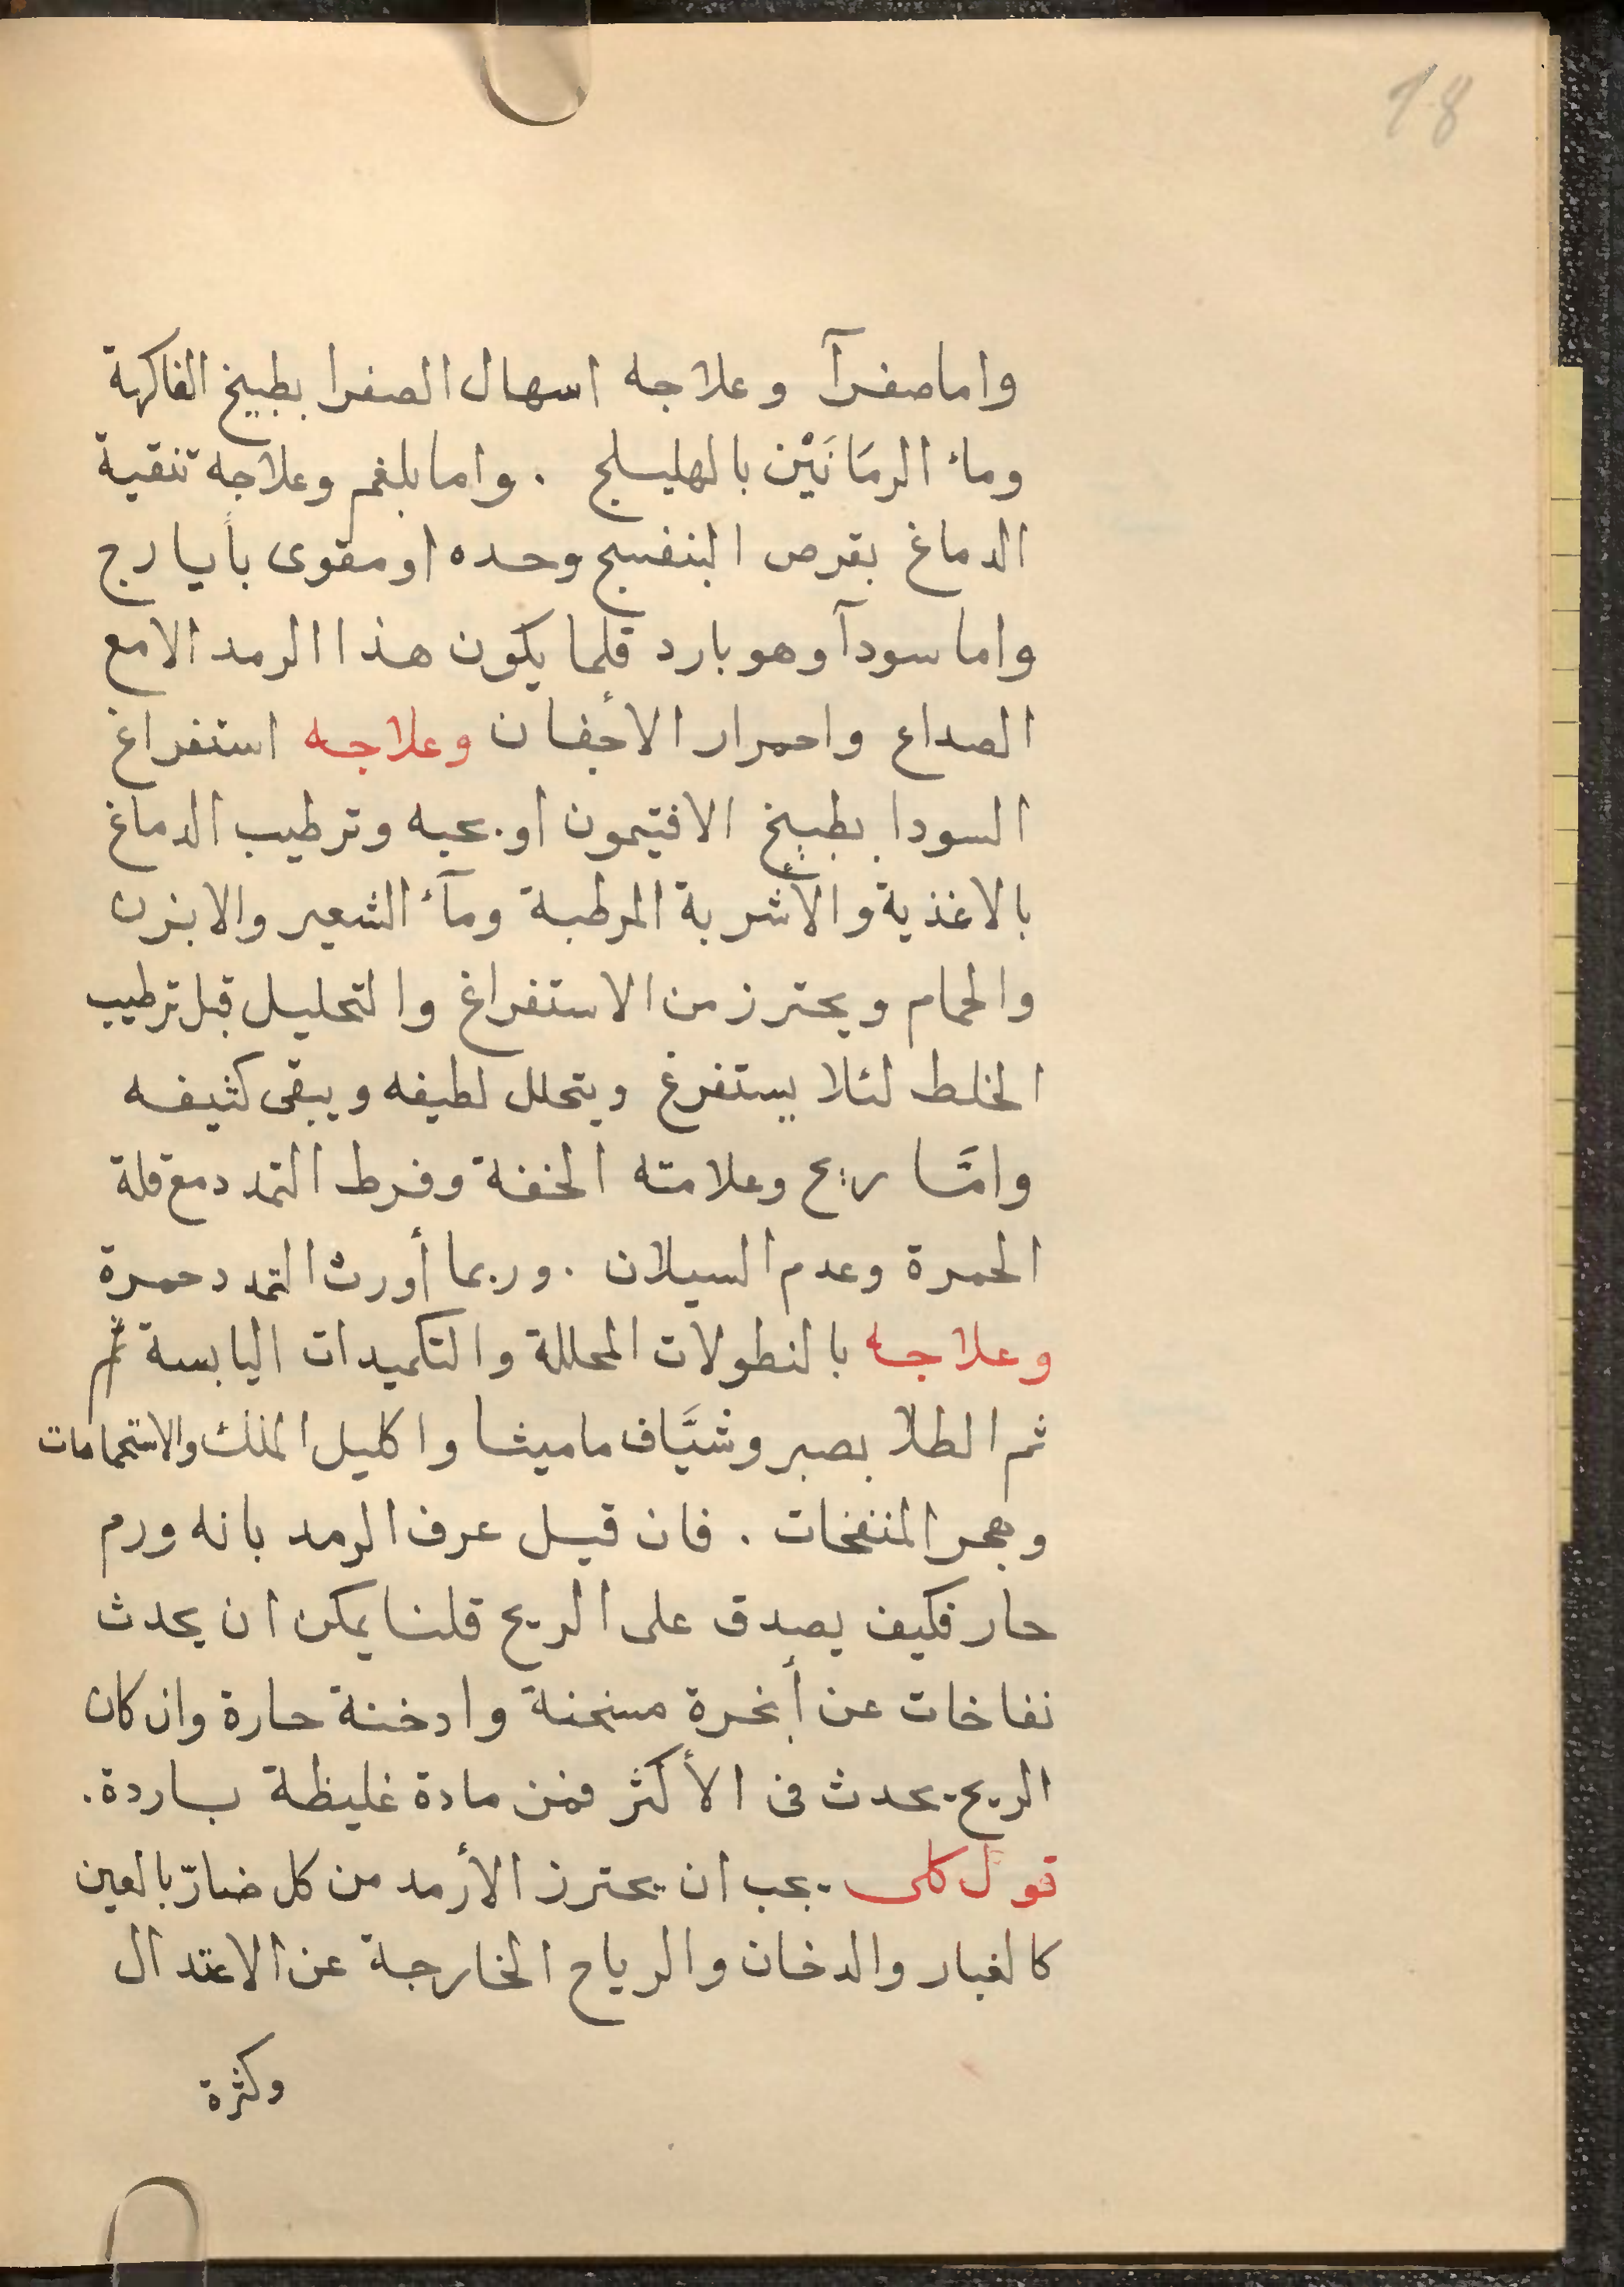 18
واما صفرآ وعلاجه اسهال الصفرا بطبيخ الفاكهة
ومائ الرمَانَيْن بالهليلج . واما بلغم وعلاجه تنقية
الدماغ بقرص البنفسج وحده او مقوى بأيارج
واما سودآ وهو بارد قلما يكون هذا الرمد الا مع
الصداع واحمرار الأجفان وعلاجه استفراغ
السودا بطبيخ الافتيمون او بحبه وترطيب الدماغ
بالاغذية والأشربة المرطبة ومآئ الشعير والابزن
والحمام ويحترز من الاستفراغ والتحليل قبل ترطيب
الخلط لئلا يستفرغ ويتحلل لطيفه ويبقى كثيفه
وامَّا ريح وعلامته الخفة وفرط التمدد مع قلة
الحمرة وعدم السيلان . وربما أورث التمدد حمرة
وعلاجه بالنطولات المحللة والتكميدات اليابسة ثم
ثم الطلا بصبر وشيَّاف ماميثا واكليل الملك والاستحمامات
وهجر المنفخات . فان قيل عرف الرمد بانه ورم
حار فكيف يصدق على الريح قلنا يمكن ان يحدث
نفاخات عن أبخرة مسخنة وادخنة حارة وان كان
الريح يحدث فى الأكثر فمن مادة غليظة باردة .
قول كلى يجب ان يحترز الأرمد من كل ضارّ بالعين
كالغبار والدخان والرياح الخارجة عن الاعتدال
وكثرة